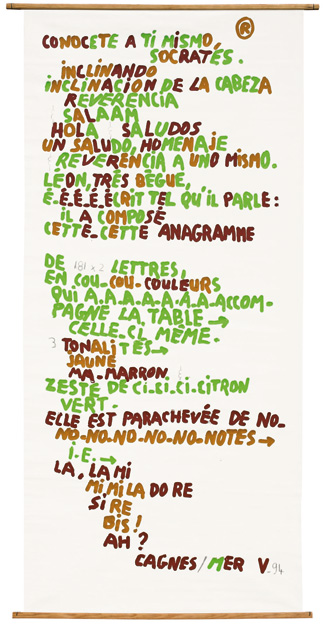 ®
CONOCETE A TI MISMO,
SOCRATES.
INCLINANDO
INCLINACION DE LA CABEZA
REVERENCIA
SALAAM
HOLA SALUDOS
UN SALUDO, HOMENAJE
REVERENCIA A UNO MISMO.
LEON, TRÈS BÈGUE,
É-É-É-É-ÉCRIT TEL QU'IL PARLE:
IL A COMPOSÉ
CETTE-CETTE ANAGRAMME
DE 181 x 2 LETTRES,
EN COU-COU-COULEURS
QUI A.A.A.A.A.A.A-ACCOM-
PAGNE LA TABLE →
CELLE-CI, MÊME.
3 TONALITÉS →
JAUNE
MA-MARRON,
ZESTE DE CI-CI-CI-CITRON
VERT.
ELLE EST PARACHEVÉE DE NO-
NO-NO-NO-NO-NO-NOTES →
I.E. →
LA, LA MI
MI MI LA DO RE
SI RE
BIS!
AH?
CAGNES/MER V.94